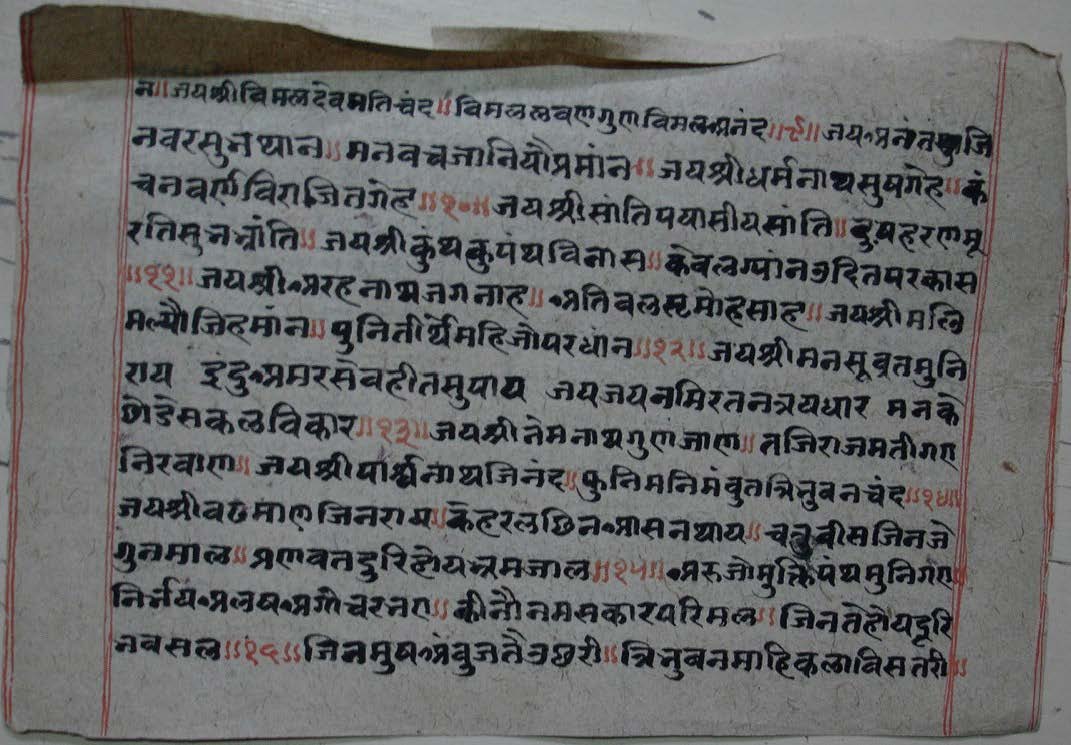 न॥जयश्रीविमलदेवमतिचंद॥विमललवणगुणविमलअनंद॥९॥जयअनंतसुजि
नवरसुनथान॥मनवचजानियौप्रमांन॥जयश्रीधर्मनाथसुषगेह॥कं
चनवर्णविराजितगेह॥१०॥जयश्रीसांतिपयासीयसांति॥दुषहरणमू
रतिसुनभ्रांति॥जयश्रीकुंथकुपंथविनास॥केवलग्यांनउदितपरकास
॥११॥जयश्रीअरहनाथजगनाह॥अतिबलसूमोहसाह॥जयश्रीमलि
मल्यौजिहमांन॥पुनितीर्थमहिजोपरधांन॥१२॥जयश्रीमनसूव्रतमुनि
राय इंदुअमरसेवहीतसुपाय जयजयनमिरतनत्रयधार मनके
छोडेसकलविकार॥१३॥जयश्रीनेमनाथगुणजाण॥तजिराजमतीगए
निरवाण॥जयश्रीपार्श्वनाथजिनंद॥फुनिमनिमंबुतत्रिभुवनचंद॥१४॥
जयश्रीवढमाणजिनराय॥केहरलछिनआसनथाय॥चतुवीसजिनजे
गुनमाल॥प्रणवतदुरिहोयभ्रमजाल॥१५॥अरुजोमुक्तिपंथमुनिगए
निर्भयअलषअगोचरभए॥कीनौनमसकारपरिमल॥जिनतेहोयदूरि
भवसल॥१६॥जिनमुषअंबुजतैउछरी॥त्रिभुवनमाहिकलाविसतरी॥